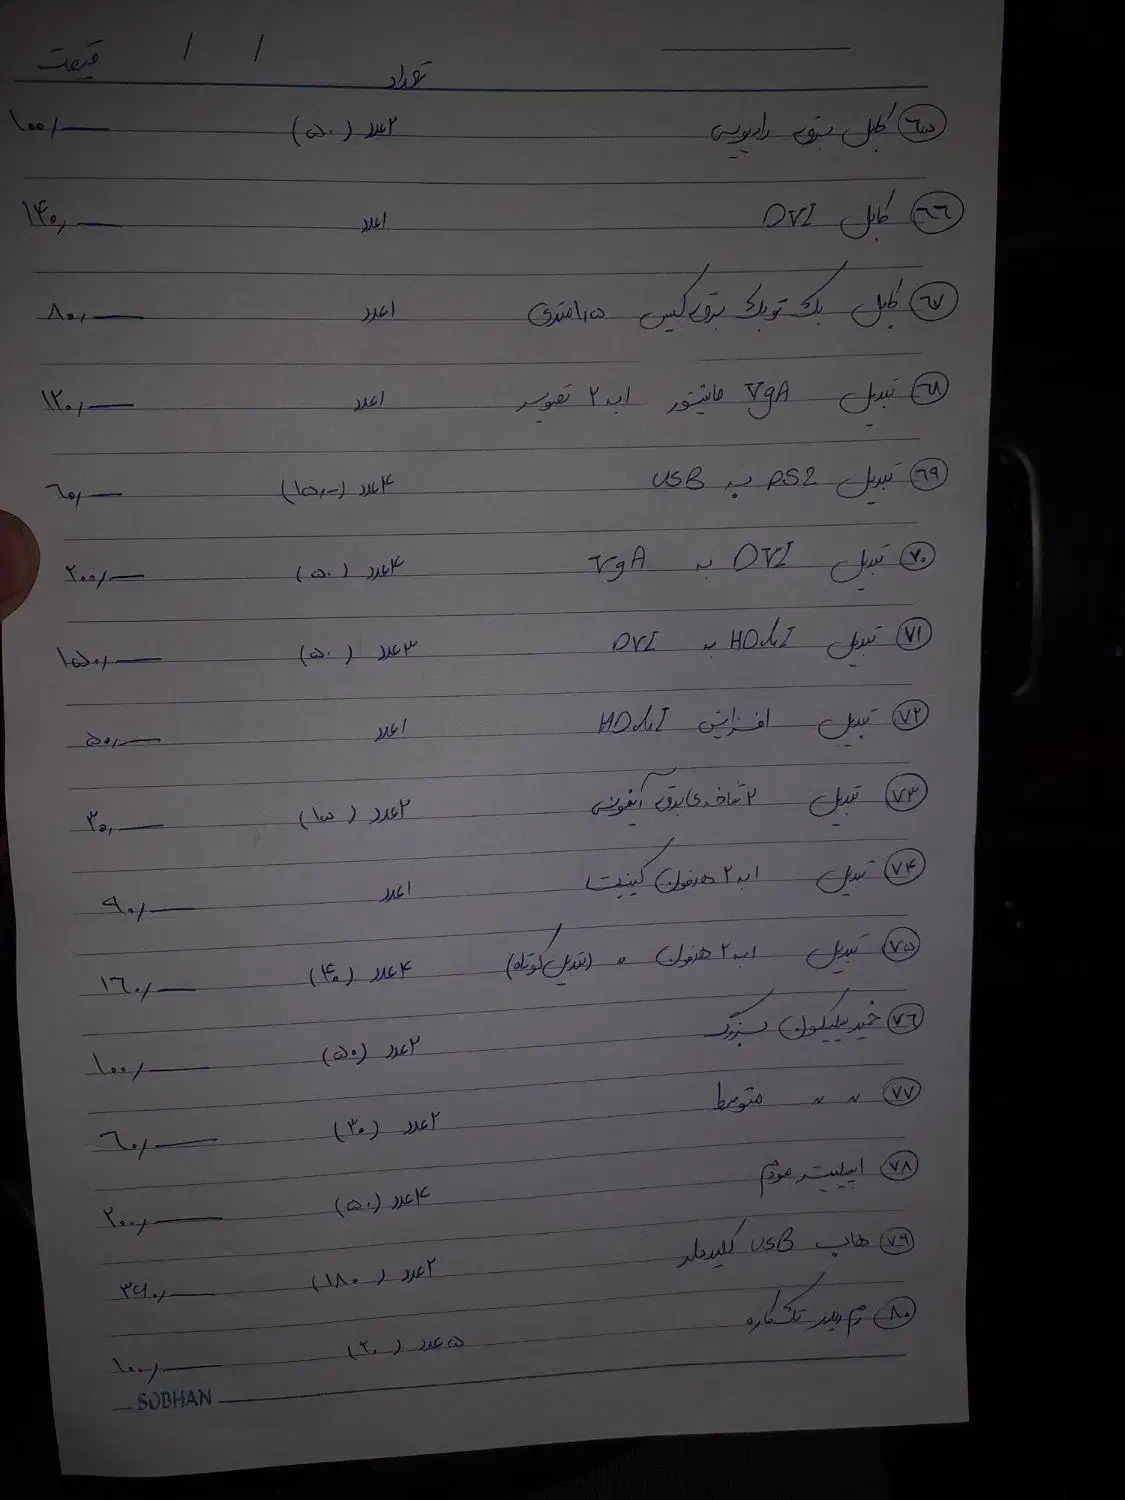 تعداد / / قیمت
۶۵ کابل برق رادیویی ۲عدد (۵۰) ۱۰۰/—
۶۶ کابل DVI ۱عدد ۱۴۰/—
۶۷ کابل بک تو بک برق کیس ۱٫۵متری ۱عدد ۸۰/—
۶۸ تبدیل VgA مانیتور ۱به۲ تصویر ۱عدد ۱۲۰/—
۶۹ تبدیل PS2 به USB ۴عدد (۱۵/-) ۶۰/—
۷۰ تبدیل DVI به VgA ۴عدد (۵۰) ۲۰۰/—
۷۱ تبدیل HDMI به DVI ۳عدد (۵۰) ۱۵۰/—
۷۲ تبدیل افزایش HDMI ۱عدد ۵۰/—
۷۳ تبدیل ۲شاخه‌ی برق آیفونی ۲عدد (۱۵) ۳۰/—
۷۴ تبدیل ۱به۲ هدفون کینیت ۱عدد ۹۰/—
۷۵ تبدیل ۱به۲ هدفون 〃 (تبدیل کوتاه) ۴عدد (۴۰) ۱۶۰/—
۷۶ خمیر سیلیکون بزرگ ۲عدد (۵۰) ۱۰۰/—
۷۷ 〃 〃 متوسط ۲عدد (۳۰) ۶۰/—
۷۸ اسپلیت مودم ۴عدد (۵۰) ۲۰۰/—
۷۹ هاب USB کلیددار ۲عدد (۱۸۰) ۳۶۰/—
۸۰ رم ریدر تک کاره ۵عدد (۲۰) ۱۰۰/—
SOBHAN